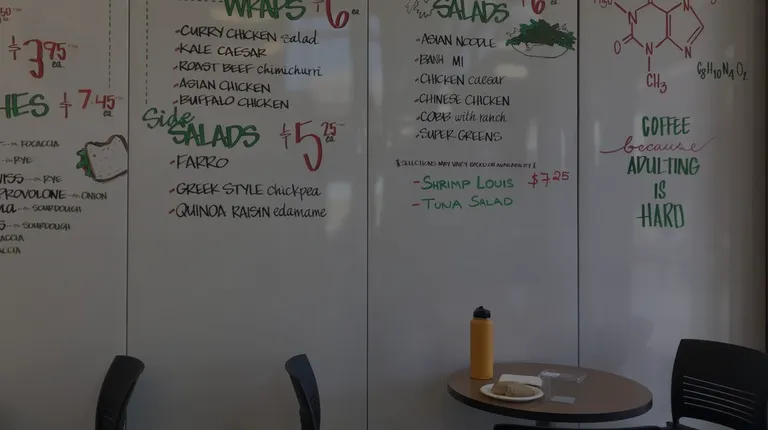 $3.95 ea
HES $7.45 ea
FOCACCIA
RYE
ISS RYE
PROVOLONE ONION
SOURDOUGH
SOURDOUGH
ACCIA
ACCIA
WRAPS $6 ea
CURRY CHICKEN salad
KALE CAESAR
ROAST BEEF chimichurri
ASIAN CHICKEN
BUFFALO CHICKEN
Side
SALADS $5.25 ea
FARRO
GREEK STYLE chickpea
QUINOA RAISIN edamame
SALADS $6 ea
ASIAN NOODLE
BANH MI
CHICKEN caesar
CHINESE CHICKEN
COBB with ranch
SUPER GREENS
SELECTIONS MAY VARY BASED ON AVAILABILITY
SHRIMP LOUIS $7.25
TUNA SALAD
H3C
O
N
N
N
CH3
C8H10N4O2
COFFEE
because
ADULTING
IS
HARD